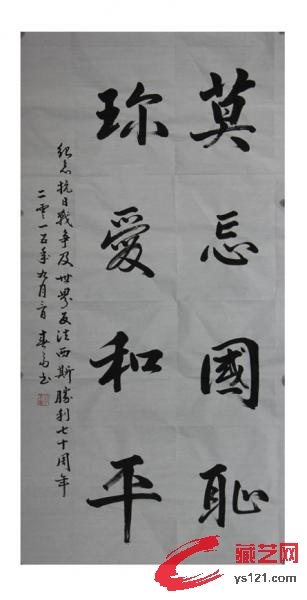 莫忘國恥
珎愛和平
紀念抗日戰争及世界反法西斯勝利七十周年
二零一五年九月
藏艺网
ys121.com